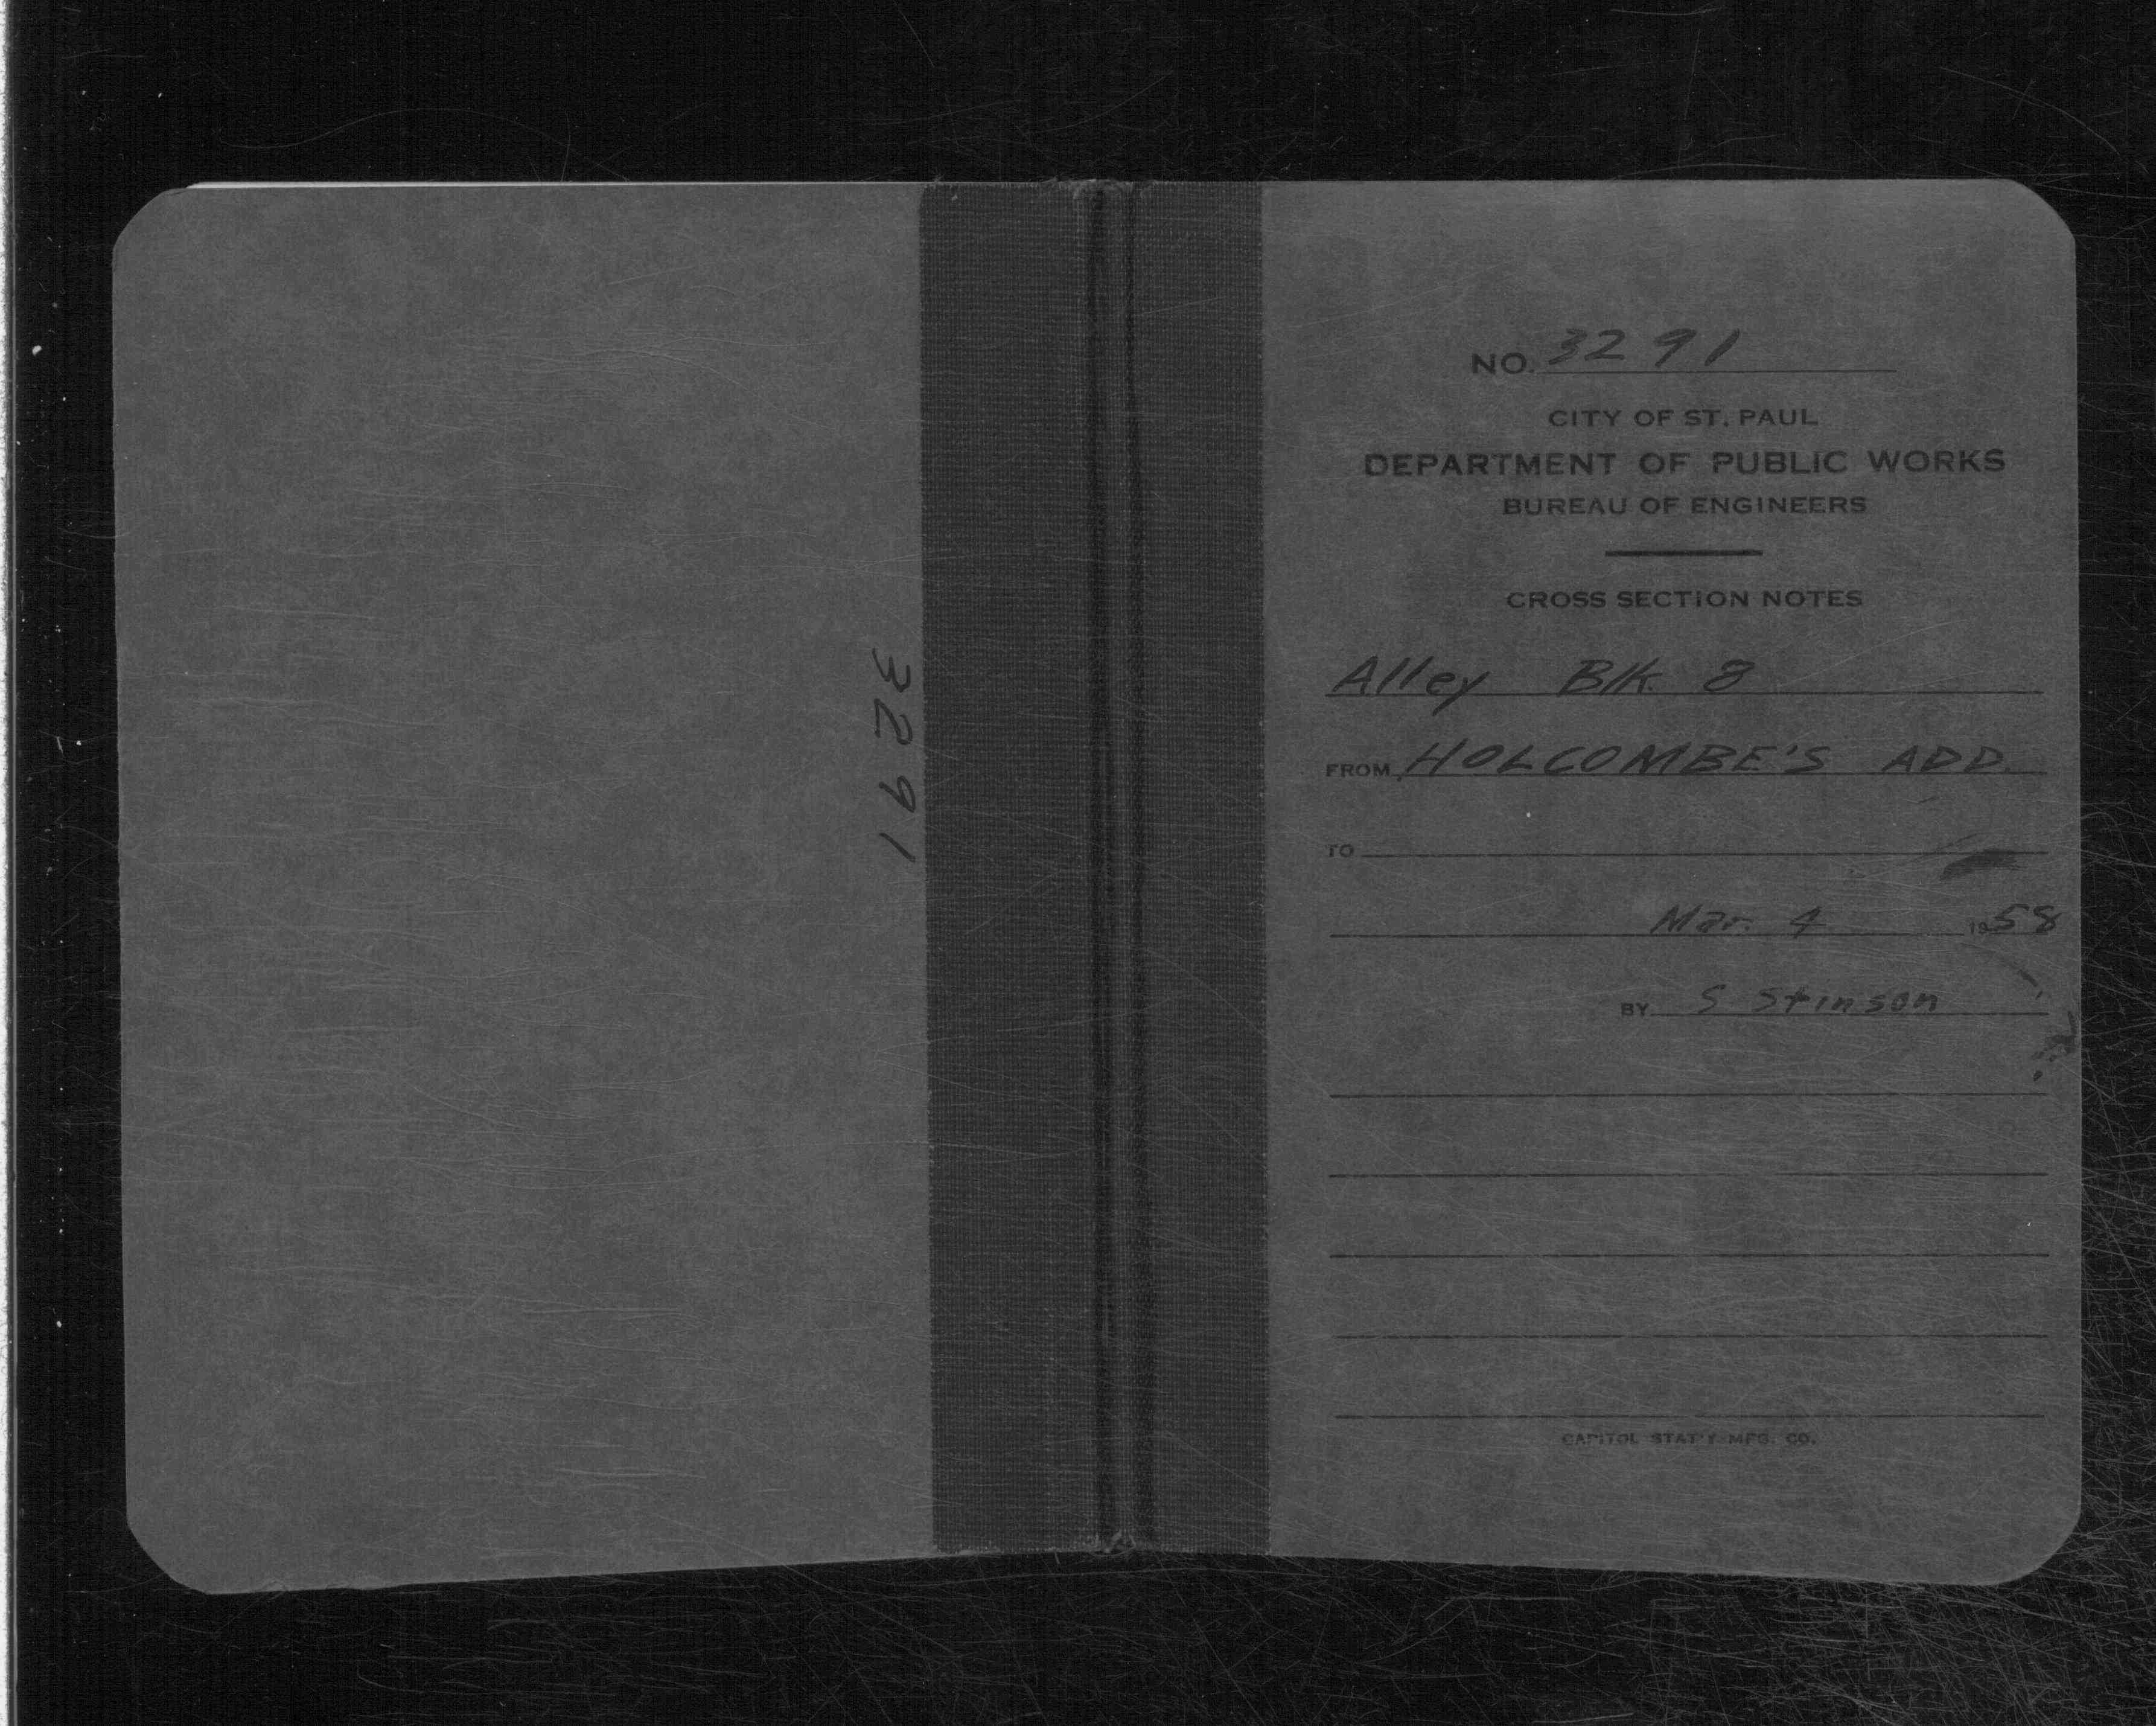 3291
NO. 3291
CITY OF ST. PAUL
DEPARTMENT OF PUBLIC WORKS
BUREAU OF ENGINEERS
CROSS SECTION NOTES
Alley Blk. 8
FROM HOLCOMBE'S ADD.
TO
Mar. 4 1958
BY S Stinson
CAPITOL STAT'Y MFG. CO.